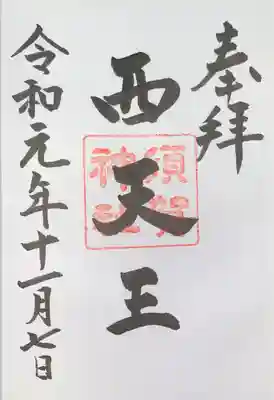 奉拝
西天王
須賀神社
令和元年十一月七日